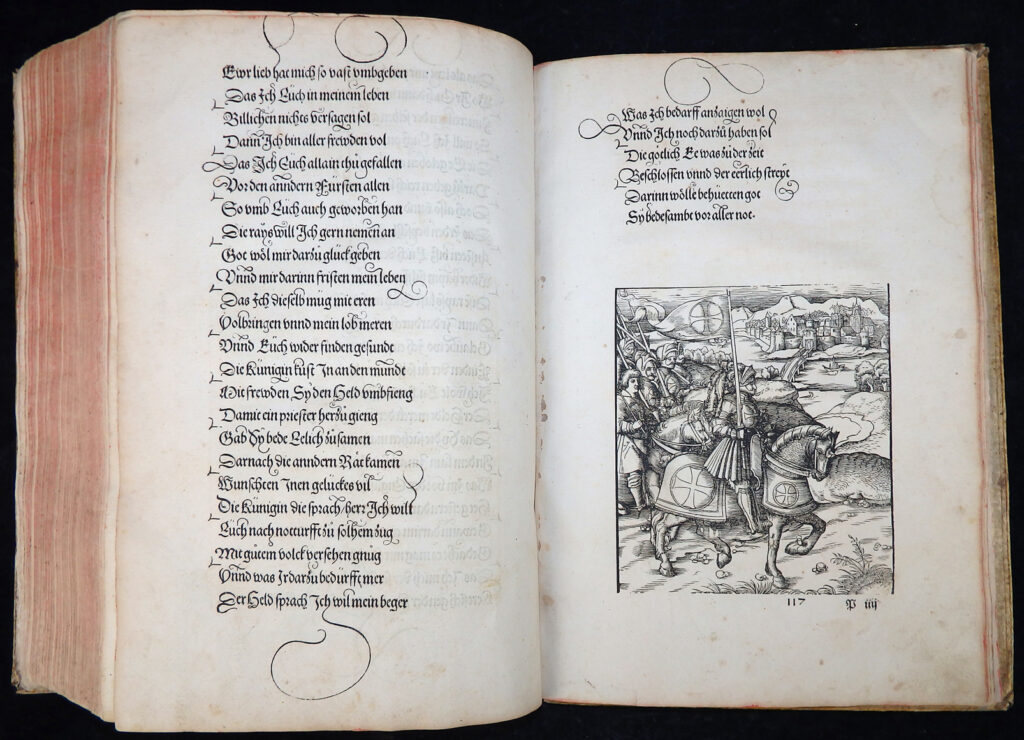 Ewr lieb hat mich so vast vmbgeben
Das Ich Euch in meinem leben
Billichen nichts versagen sol
Dann Ich bin aller frewden vol
Das Ich Euch allain thů gefallen
Vor den anndern Fürsten allen
So vmb Euch auch geworben han
Die rays will Ich gern nemen an
Got wöl mir darzů glück geben
Vnnd mir darinn fristen mein leben
Das Ich dieselb müg mit eren
Volbringen vnnd mein lob meren
Vnnd Euch wider finden gesundt
Die Künigin kust In an den mundt
Mit frewden, Sy den Held vmbfieng
Damit ein priester herzů gieng
Gab dy bede Eelich zůsamen
Darnach die anndern Rät kamen
Wunschten Inen gelückes vil
Die Künigin die sprach/herr Ich wil
Euch nach notturfft zů solhem zug
Mit gůtem volck versehen gnůg
Vnnd was Ir darzů bedürfft mer
Der Held sprach Ich wil mein beger
Was Ich bedarff anzaigen wol
Vnnd Ich noch darzů haben sol
Die götlich Ee was zů der zeit
Beschlossen vnnd der eerlich streyt
Darinn wölle behuetten got
Sy bedesambt vor aller not.
117 P iiij